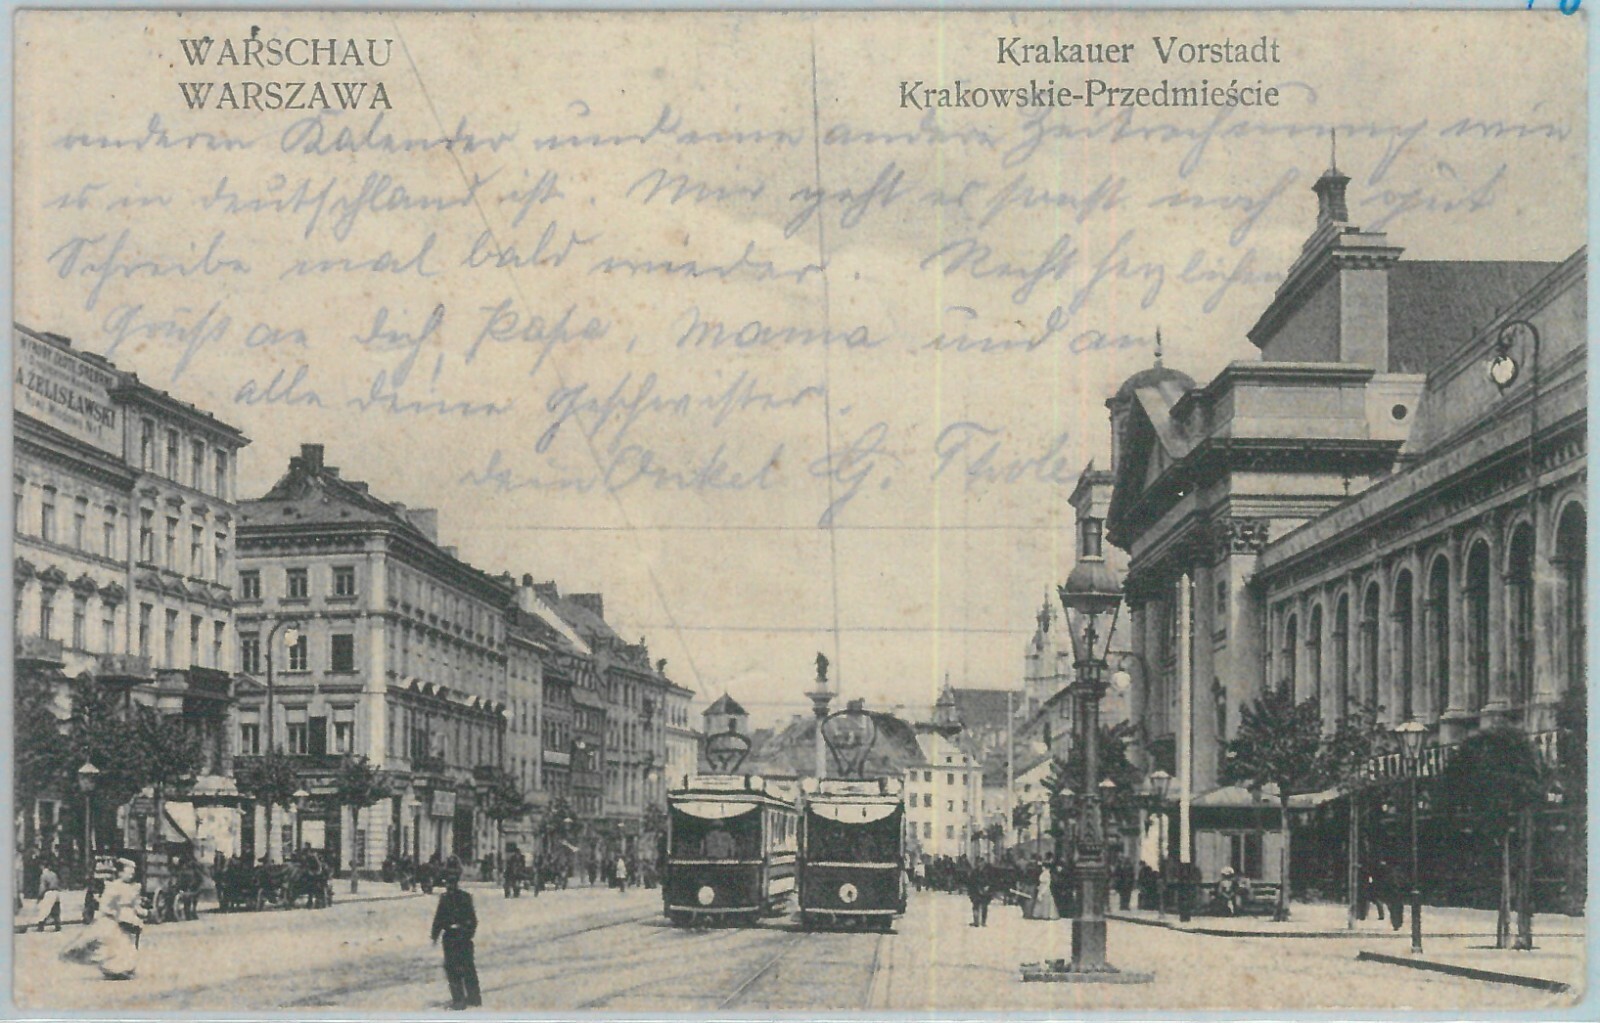 WARSCHAU
WARSZAWA
Krakauer Vorstadt
Krakowskie-Przedmieście
anderen Kalender und eine andere Zeitrechnung wie
es in deutschland ist. Mir geht es sonst noch gut.
Schreibe mal bald wieder. Recht herzlichen
Gruß an dich, Papa, Mama und an
alle deine Geschwister.
dein Onkel G.
A ŻELISŁAWSKI